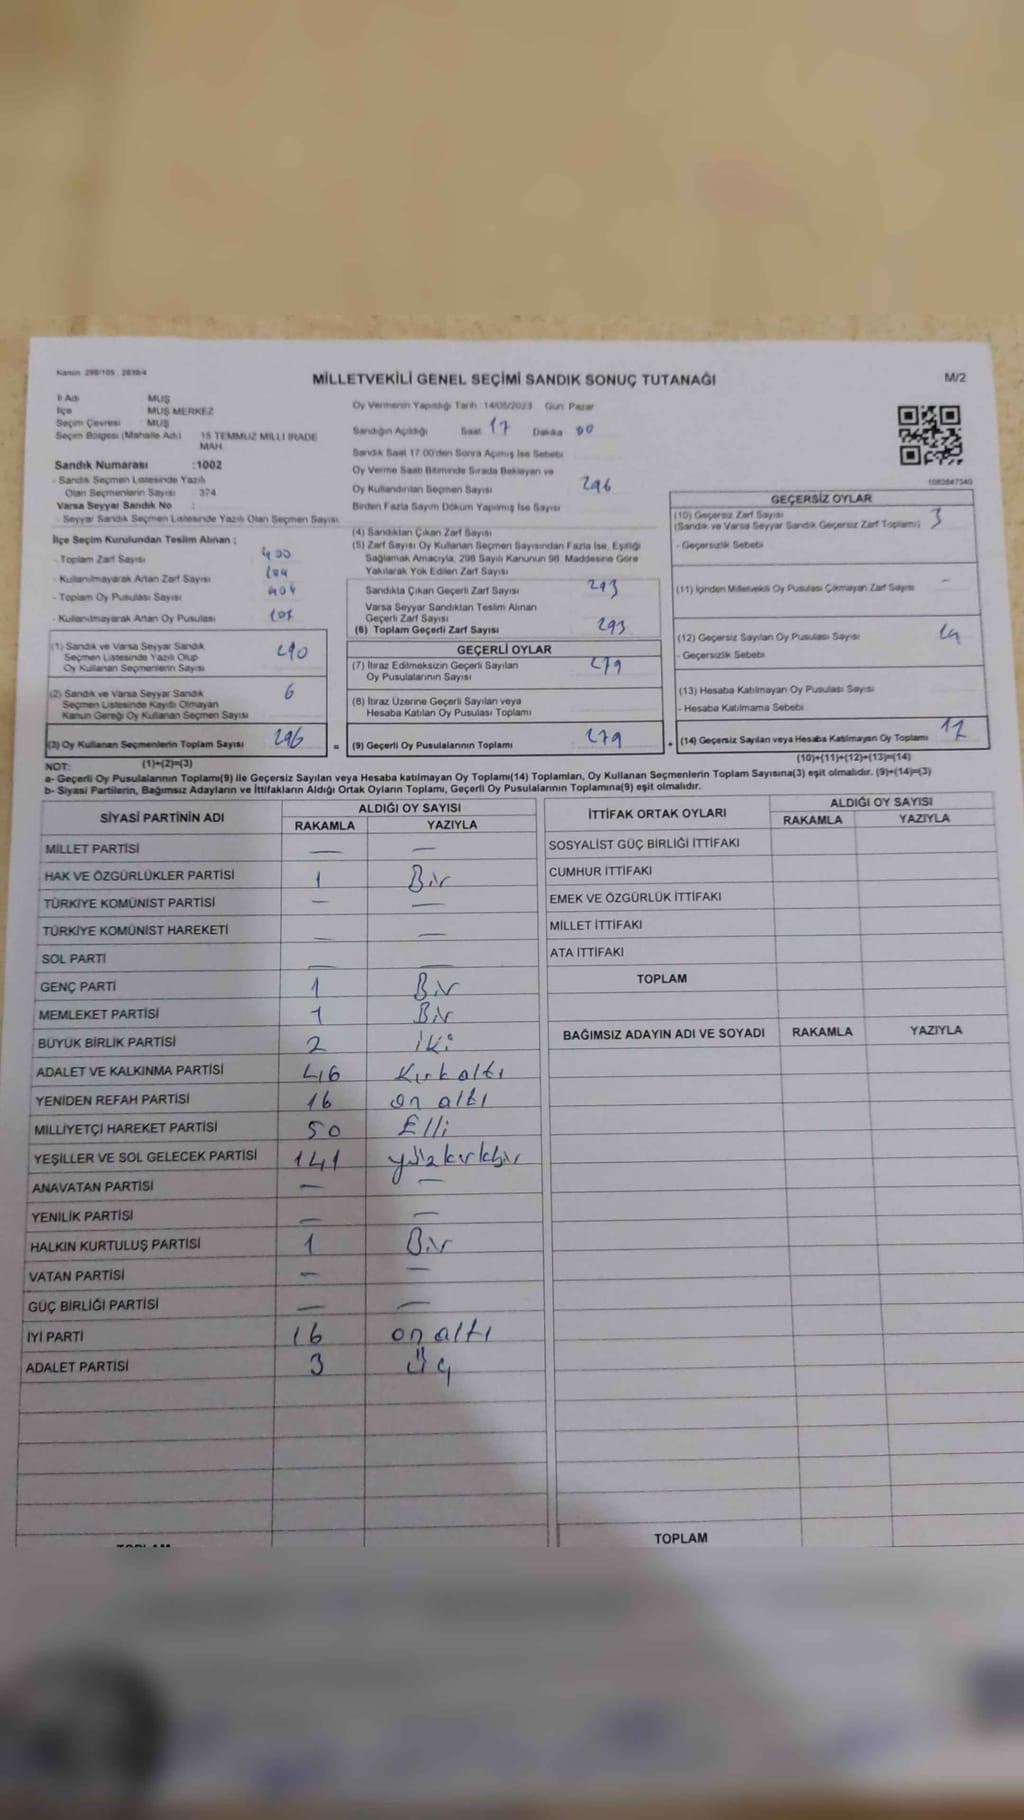 Kanun: 298/105 2839/4
MİLLETVEKİLİ GENEL SEÇİMİ SANDIK SONUÇ TUTANAĞI
M/2
İl Adı MUŞ
İlçe MUŞ MERKEZ
Seçim Çevresi MUŞ
Seçim Bölgesi (Mahalle Adı) 15 TEMMUZ MİLLİ İRADE
MAH.
Sandık Numarası :1002
- Sandık Seçmen Listesinde Yazılı
Olan Seçmenlerin Sayısı 374
Varsa Seyyar Sandık No :
- Seyyar Sandık Seçmen Listesinde Yazılı Olan Seçmen Sayısı
İlçe Seçim Kurulundan Teslim Alınan :
- Toplam Zarf Sayısı 400
- Kullanılmayarak Artan Zarf Sayısı 104
- Toplam Oy Pusulası Sayısı 404
- Kullanılmayarak Artan Oy Pusulası
(1) Sandık ve Varsa Seyyar Sandık
Seçmen Listesinde Yazılı Olup
Oy Kullanan Seçmenlerin Sayısı 290
(2) Sandık ve Varsa Seyyar Sandık
Seçmen Listesinde Kayıtlı Olmayan
Kanun Gereği Oy Kullanan Seçmen Sayısı 6
(3) Oy Kullanan Seçmenlerin Toplam Sayısı 296
(1)+(2)=(3)
Oy Vermenin Yapıldığı Tarih :14/05/2023 Gün: Pazar
Sandığın Açıldığı Saat 17 Dakika 00
Sandık Saat 17:00'den Sonra Açılmış İse Sebebi
Oy Verme Saati Bitiminde Sırada Bekleyen ve
Oy Kullandırılan Seçmen Sayısı 296
Birden Fazla Sayım Döküm Yapılmış İse Sayısı
(4) Sandıktan Çıkan Zarf Sayısı
(5) Zarf Sayısı Oy Kullanan Seçmen Sayısından Fazla İse, Eşitliği
Sağlamak Amacıyla, 298 Sayılı Kanunun 98. Maddesine Göre
Yakılarak Yok Edilen Zarf Sayısı
Sandıkta Çıkan Geçerli Zarf Sayısı 293
Varsa Seyyar Sandıktan Teslim Alınan
Geçerli Zarf Sayısı
(6) Toplam Geçerli Zarf Sayısı 293
GEÇERLİ OYLAR
(7) İtiraz Edilmeksizin Geçerli Sayılan
Oy Pusulalarının Sayısı 279
(8) İtiraz Üzerine Geçerli Sayılan veya
Hesaba Katılan Oy Pusulası Toplamı
= (9) Geçerli Oy Pusulalarının Toplamı 279
1083847340
GEÇERSİZ OYLAR
(10) Geçersiz Zarf Sayısı 3
(Sandık ve Varsa Seyyar Sandık Geçersiz Zarf Toplamı)
- Geçersizlik Sebebi
(11) İçinden Milletvekili Oy Pusulası Çıkmayan Zarf Sayısı -
(12) Geçersiz Sayılan Oy Pusulası Sayısı 14
- Geçersizlik Sebebi
(13) Hesaba Katılmayan Oy Pusulası Sayısı
- Hesaba Katılmama Sebebi
+ (14) Geçersiz Sayılan veya Hesaba Katılmayan Oy Toplamı 17
(10)+(11)+(12)+(13)=(14)
NOT:
a- Geçerli Oy Pusulalarının Toplamı(9) ile Geçersiz Sayılan veya Hesaba katılmayan Oy Toplamı(14) Toplamları, Oy Kullanan Seçmenlerin Toplam Sayısına(3) eşit olmalıdır. (9)+(14)=(3)
b- Siyasi Partilerin, Bağımsız Adayların ve İttifakların Aldığı Ortak Oyların Toplamı, Geçerli Oy Pusulalarının Toplamına(9) eşit olmalıdır.
SİYASİ PARTİNİN ADI ALDIĞI OY SAYISI
RAKAMLA YAZIYLA
MİLLET PARTİSİ — —
HAK VE ÖZGÜRLÜKLER PARTİSİ 1 Bir
TÜRKİYE KOMÜNİST PARTİSİ — —
TÜRKİYE KOMÜNİST HAREKETİ — —
SOL PARTİ — —
GENÇ PARTİ 1 Bir
MEMLEKET PARTİSİ 1 Bir
BÜYÜK BİRLİK PARTİSİ 2 iki
ADALET VE KALKINMA PARTİSİ 46 Kırk altı
YENİDEN REFAH PARTİSİ 16 on altı
MİLLİYETÇİ HAREKET PARTİSİ 50 Elli
YEŞİLLER VE SOL GELECEK PARTİSİ 141 yüzkırkbir
ANAVATAN PARTİSİ — —
YENİLİK PARTİSİ — —
HALKIN KURTULUŞ PARTİSİ 1 Bir
VATAN PARTİSİ — —
GÜÇ BİRLİĞİ PARTİSİ — —
İYİ PARTİ 16 on altı
ADALET PARTİSİ 3 üç
TOPLAM
İTTİFAK ORTAK OYLARI ALDIĞI OY SAYISI
RAKAMLA YAZIYLA
SOSYALİST GÜÇ BİRLİĞİ İTTİFAKI
CUMHUR İTTİFAKI
EMEK VE ÖZGÜRLÜK İTTİFAKI
MİLLET İTTİFAKI
ATA İTTİFAKI
TOPLAM
BAĞIMSIZ ADAYIN ADI VE SOYADI RAKAMLA YAZIYLA
TOPLAM